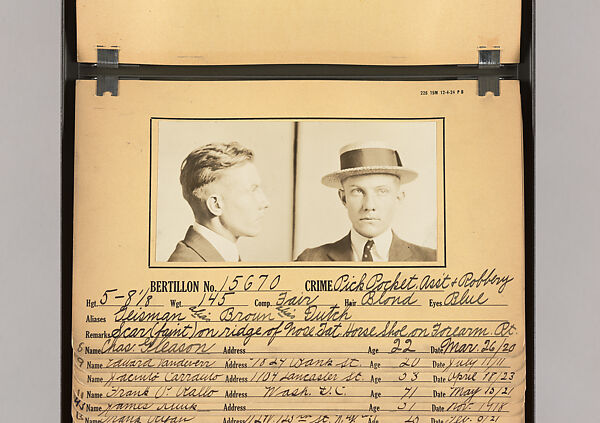 228 15M 12-4-24 P B
BERTILLON No. 15670 CRIME Pick Pocket, As'lt & Robbery
Hgt. 5-8 1/8 Wgt. 145 Comp. Fair Hair Blond Eyes Blue
Aliases Geisman Alias Brown Alias Dutch
Remarks Scar (faint) on ridge of Nose Tat Horse Shoe on Forearm Rt
Name Chas. Gleason Address Age 22 Date Mar. 26/20
9 Name Edward Address Age 20 Date July
Name Address 1104 Lancaster St. Age 38 Date April 18/23
Name Frank Address Wash. D.C. Age 41 Date May 13/21
Name James Address Age 21 Date Nov. 19/18
Name Frank Address Age Date